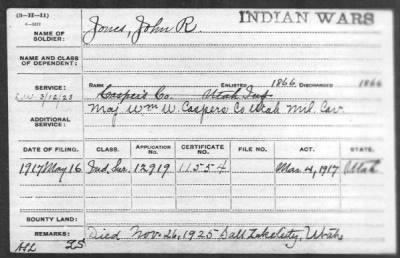 (3—32—11)
INDIAN WARS
NAME OF SOLDIER: Jones, John R.
NAME AND CLASS OF DEPENDENT:
SERVICE: RANK Casper's Co. ENLISTED Utah Inf 1866 DISCHARGED 1866
Maj Wm W. Caspers Co Utah Mil. Cav.
ADDITIONAL SERVICE:
DATE OF FILING. CLASS. APPLICATION NO. CERTIFICATE NO. FILE NO. ACT. STATE.
1917 May 16 Ind. Sur. 12919 11554 Mar. 4, 1917 Utah
BOUNTY LAND:
REMARKS: Died Nov. 26, 1925 Salt Lake City, Utah